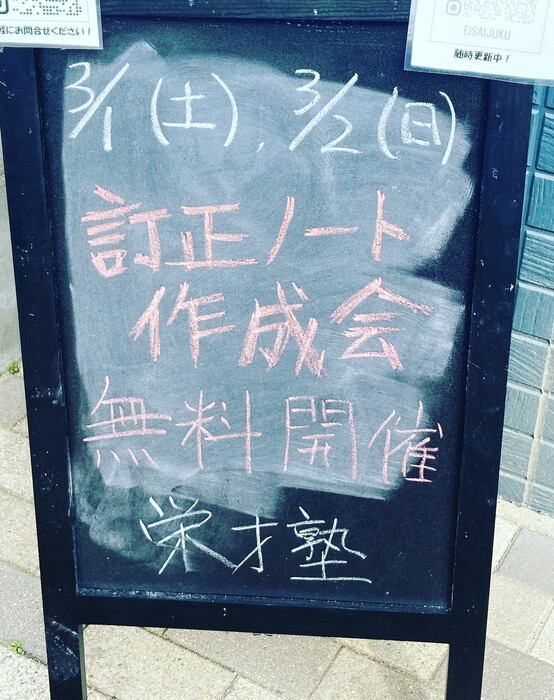 軽にお問合せください!
EISAIJUKU
随時更新中!
3/1(土)、3/2(日)
訂正ノート
作成会
無料開催
栄才塾